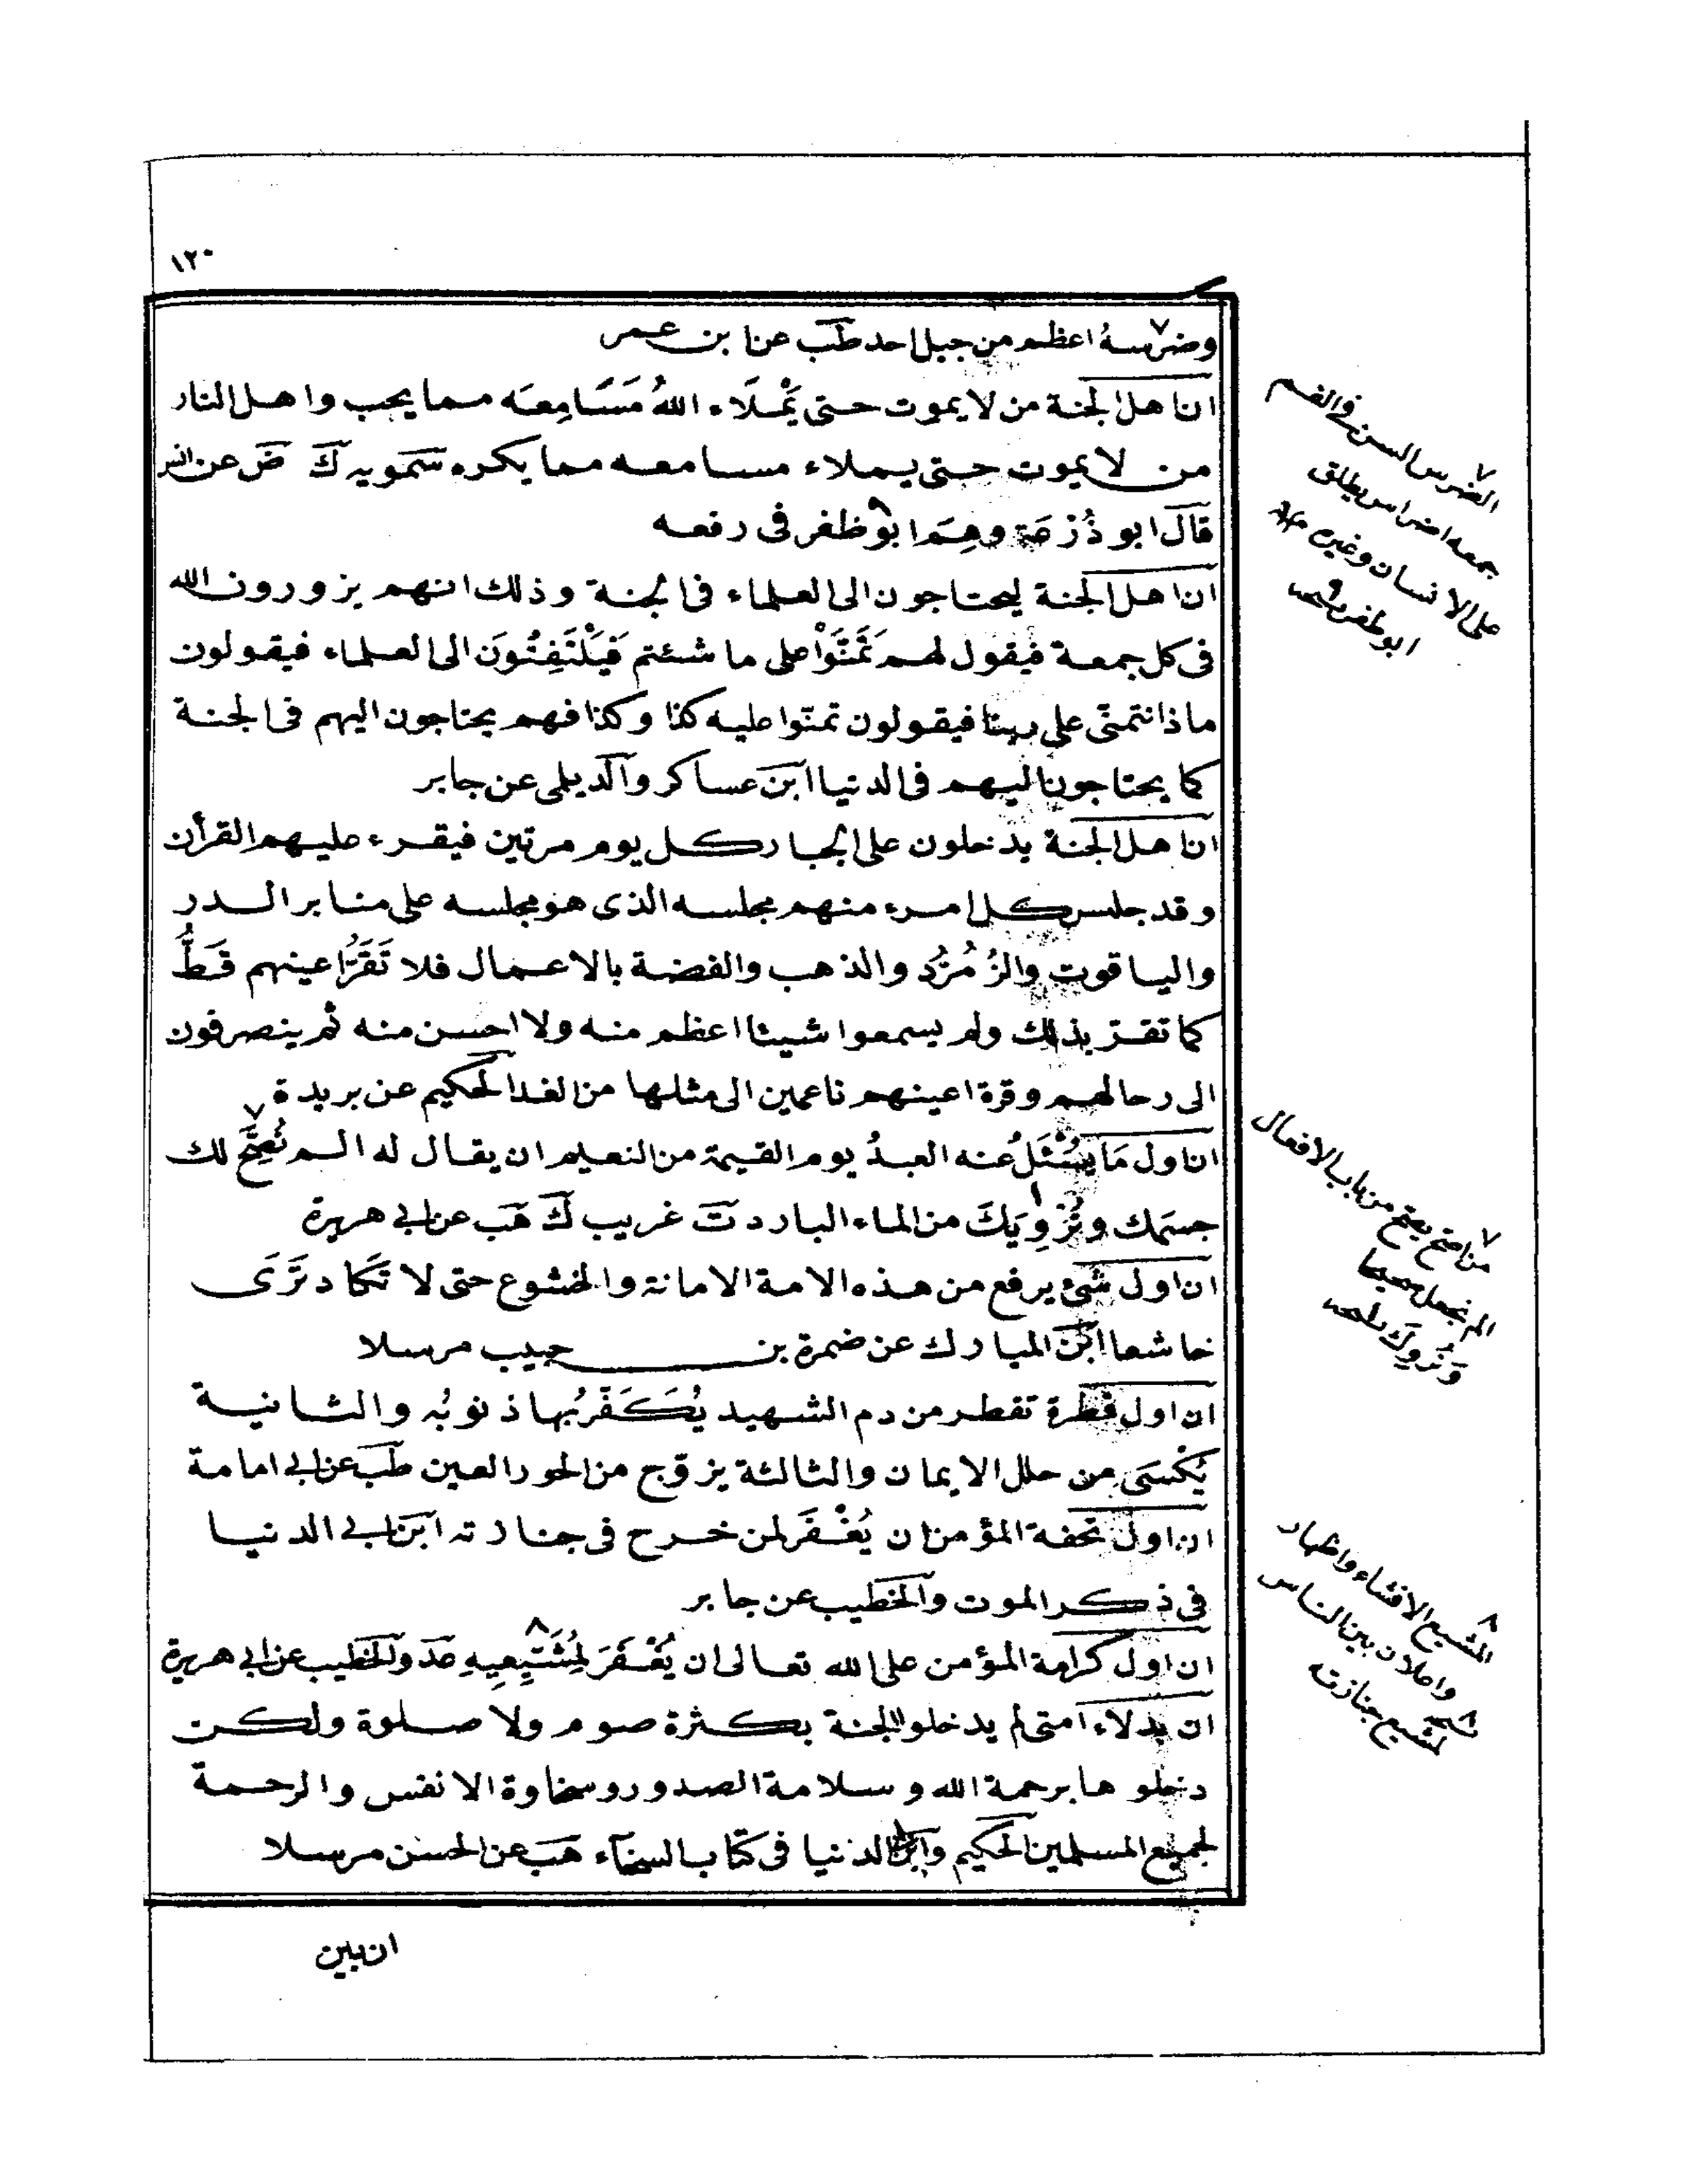 ١٢٠
وضرسهُ اعظم من جبل احد طب عن ابن عمر
ان اهل الجنة من لا يموت حتى يَمْلَاء اللهُ مَسَامِعَه مما يحب واهل النار
من لا يموت حتى يملاء مسامعه مما يكره سمويه ك ض عن انس
قال ابو ذُرْعَة وهِمَ ابو ظفر فى رفعه
ان اهل الجنة ليحتاجون الى العلماء فى الجنة وذلك انهم يزورون الله
فى كل جمعة فيقول لهم تَمَنَّوْا على ما شئتم فَيَلْتَفِتُونَ الى العلماء فيقولون
ماذا نتمنّى على ربنا فيقولون تمنّوا عليه كذا وكذا فهم يحتاجون اليهم فى الجنة
كما يحتاجون اليهم فى الدنيا ابن عساكر والديلمى عن جابر
ان اهل الجنة يدخلون على الجبار كل يوم مرتين فيقرء عليهم القرأن
وقد جلس كل امرء منهم مجلسه الذى هو مجلسه على منابر الدر
والياقوت والزُمُرُّد والذهب والفضة بالاعمال فلا تَقَرُّ اعينهم قَطُّ
كما تقرّ بذلك ولم يسمعوا شيئا اعظم منه ولا احسن منه ثم ينصرفون
الى رحالهم وقرة اعينهم ناعمين الى مثلها من الغد الحكيم عن بريدة
ان اول مَا يُسْئَلُ عنه العبدُ يوم القيمة من النعيم ان يقال له الم نُصِحَّ لك
جسمك ونُرْوِيَكَ من الماء البارد ت غريب ك هب عن ابى هريرة
ان اول شئ يرفع من هذه الامة الامانة والخشوع حتى لا تَكاد تَرَى
خاشعا ابن المبارك عن ضمرة بن حبيب مرسلا
ان اول قطرة تقطر من دم الشهيد يُكَفَّرُ بها ذنوبُه والثانية
يُكْسَى من حلل الايمان والثالثة يزوّج من الحور العين طب عن ابى امامة
ان اول تحفة المؤمن ان يُغْفَرَ لمن خرج فى جنازته ابن ابى الدنيا
فى ذكر الموت والخطيب عن جابر
ان اول كرامة المؤمن على الله تعالى ان يُغْفَرَ لِمُشَيِّعِيهِ عد والخطيب عن ابى هريرة
ان بدلاء امتى لم يدخلوا الجنة بكثرة صوم ولا صلوة ولكن
دخلوها برحمة الله وسلامة الصدور وسخاوة الانفس والرحمة
لجميع المسلمين الحكيم وابن ابى الدنيا فى كتاب السخآء هب عن الحسن مرسلا
ان بين
٧ الضرس السن فى الفم
جمعه اضراس يطلق
على الانسان وغيره
ابو ظفر
٧ من اصح يصح من باب الافعال
الم نجعل صحيحا
وَنُروِكَ
٨ المشيع الافشاء واظهار
واعلان بين الناس
لمشيع جنازته